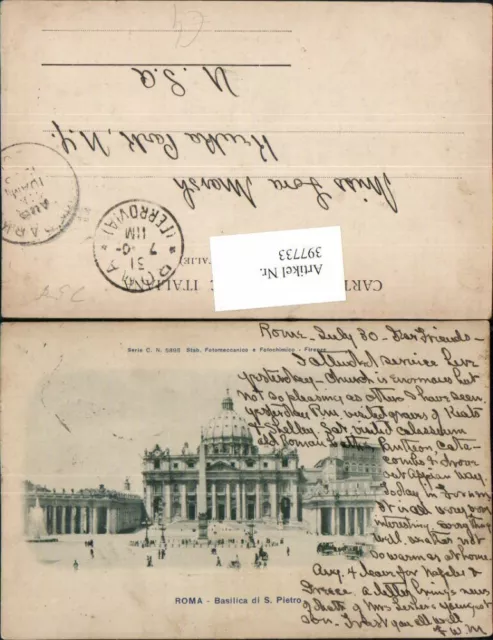 U.S.A
Keuka Park, N.Y.
Miss Lora Marsh
ROMA
(FERROVIA)
31
7-0-
11M
AUG
Artikel Nr.
397733
ITALIE)
CART
ITALIANA
Serie C. N. 5805 Stab. Fotomeccanico e Fotochimico - Firenze
Rome - July 30 - Dear Friends -
I attended service here
yesterday - Church is enormous but
not so pleasing as others I have seen.
yesterday P.m. visited graves of Keats
& Shelley. Sat. visited Colosseum
old Roman baths - Pantheon, Cata-
combs & drove
out Appian way.
Today in Forum
It is all very very
interesting. Everything
well, weather not
so warm as at home.
Aug. 4 leave for Naples &
Greece. a letter brings news
of death of Mrs youngest
son. Trust you all well
F.W.M
ROMA - Basilica di S. Pietro